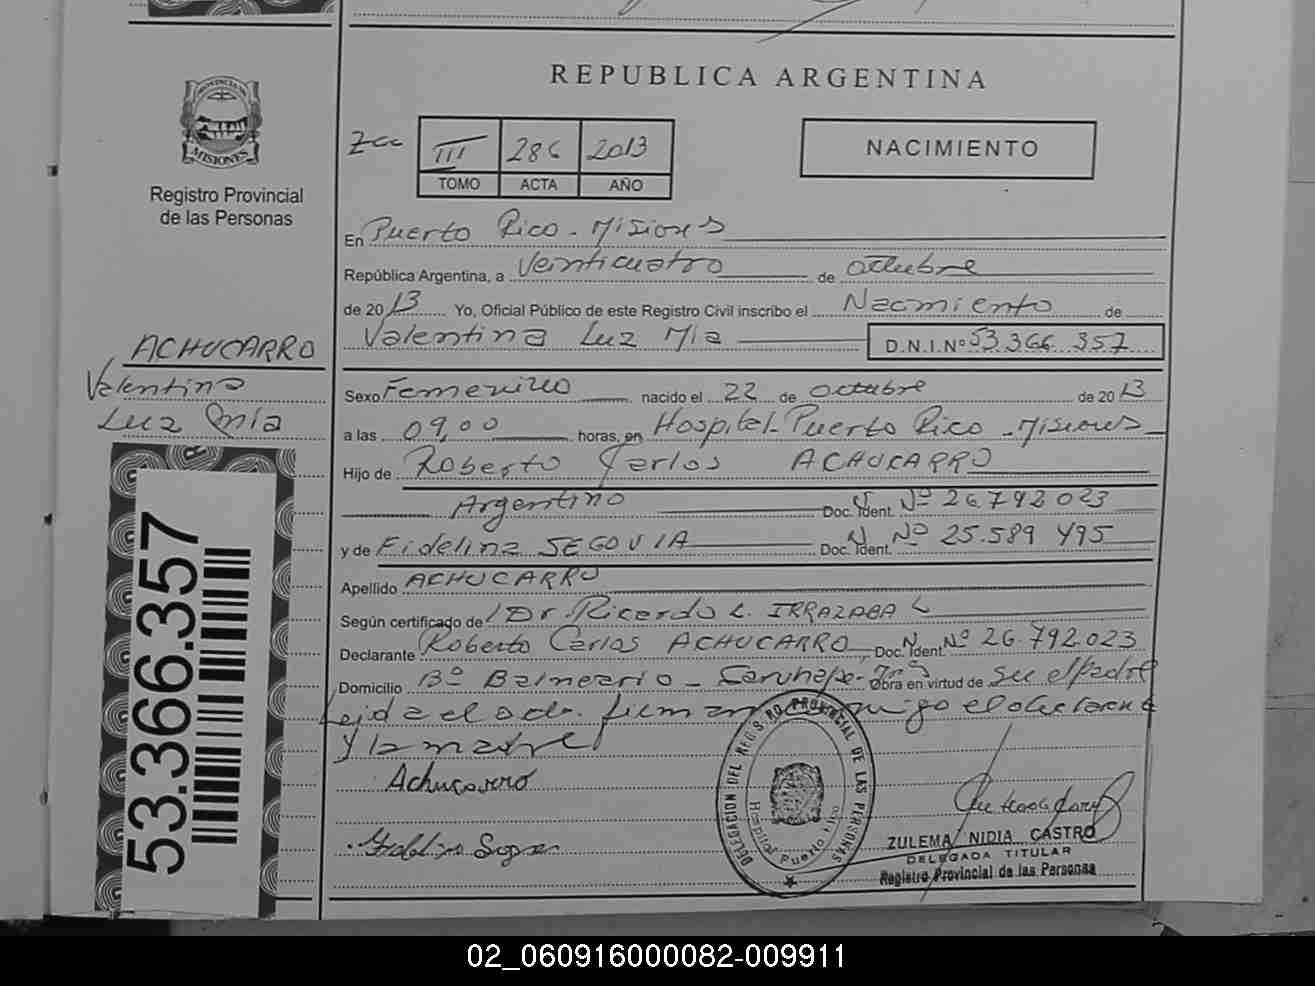 REPUBLICA ARGENTINA
PROVINCIA DE
MISIONES
Registro Provincial
de las Personas
III 286 2013
TOMO ACTA AÑO
NACIMIENTO
En Puerto Rico - Misiones
República Argentina, a Veinticuatro de octubre
de 2013 Yo, Oficial Público de este Registro Civil inscribo el Nacimiento de
Valentina Luz Mia D.N.I.Nº 53366 357
ACHUCARRO
Valentina
Luz Mia
Sexo Femenino nacido el 22 de octubre de 2013
a las 09,00 horas, en Hospital Puerto Rico - Misiones
Hijo de Roberto Carlos ACHUCARRO
Argentino Doc. Ident. Nº 26.792.023
y de Fidelina SEGOVIA Doc. Ident. Nº 25.589 495
Apellido ACHUCARRO
Según certificado de Dr Ricardo L. IRRAZABAL
Declarante Roberto Carlos ACHUCARRO Doc. Ident. Nº 26.792.023
Domicilio Bº Balneario - Caruhape - Obra en virtud de su el padre
Leida el acta firman conmigo el declarante
y la madre
Achucarro
53.366.357
DELEGACION DEL REGISTRO PROVINCIAL DE LAS PERSONAS
Hospital Puerto Rico
ZULEMA NIDIA CASTRO
DELEGADA TITULAR
Registro Provincial de las Personas
02_060916000082-009911